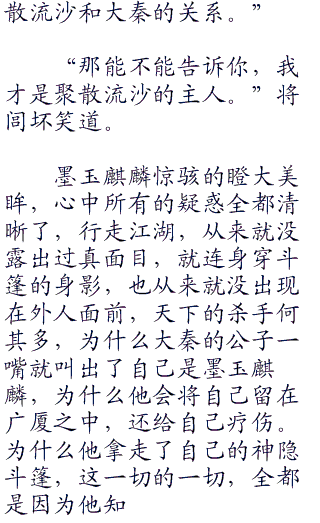 散流沙和大秦的关系。”
“那能不能告诉你，我
才是聚散流沙的主人。”将
闾坏笑道。
墨玉麒麟惊骇的瞪大美
眸，心中所有的疑惑全都清
晰了，行走江湖，从来就没
露出过真面目，就连身穿斗
篷的身影，也从来就没出现
在外人面前，天下的杀手何
其多，为什么大秦的公子一
嘴就叫出了自己是墨玉麒
麟，为什么他会将自己留在
广厦之中，还给自己疗伤。
为什么他拿走了自己的神隐
斗篷，这一切的一切，全都
是因为他知